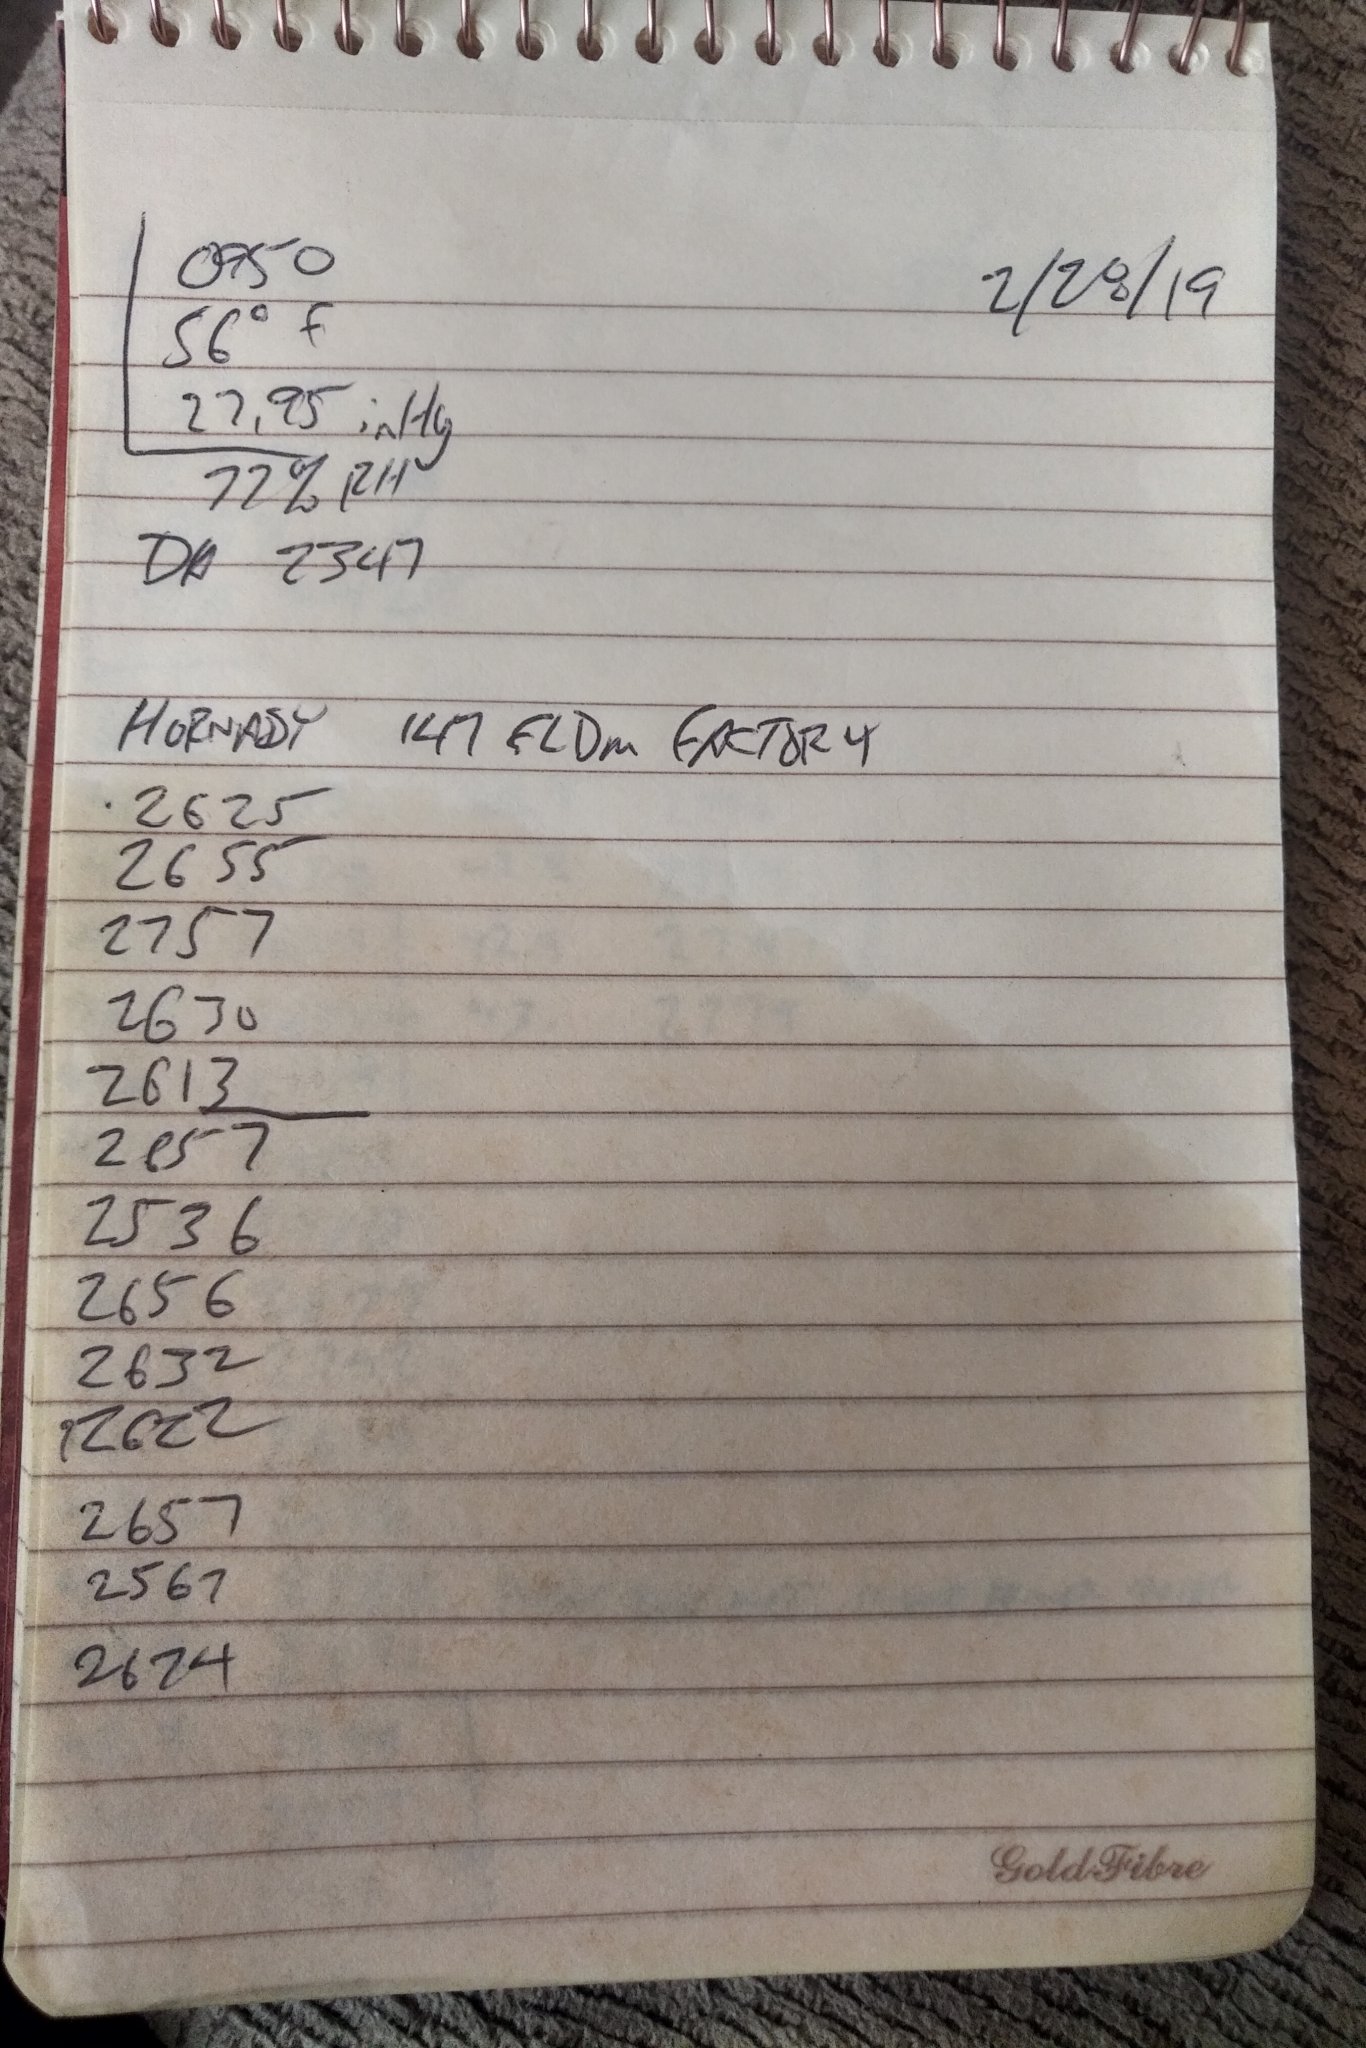 0950
2/28/19
56° F
27.95 inHg
77% RH
DA 2347
HORNADY 147 ELDm FACTORY
2625
2655
2757
2630
2613
2536
2656
2632
2622
2657
2567
2674
GoldFibre